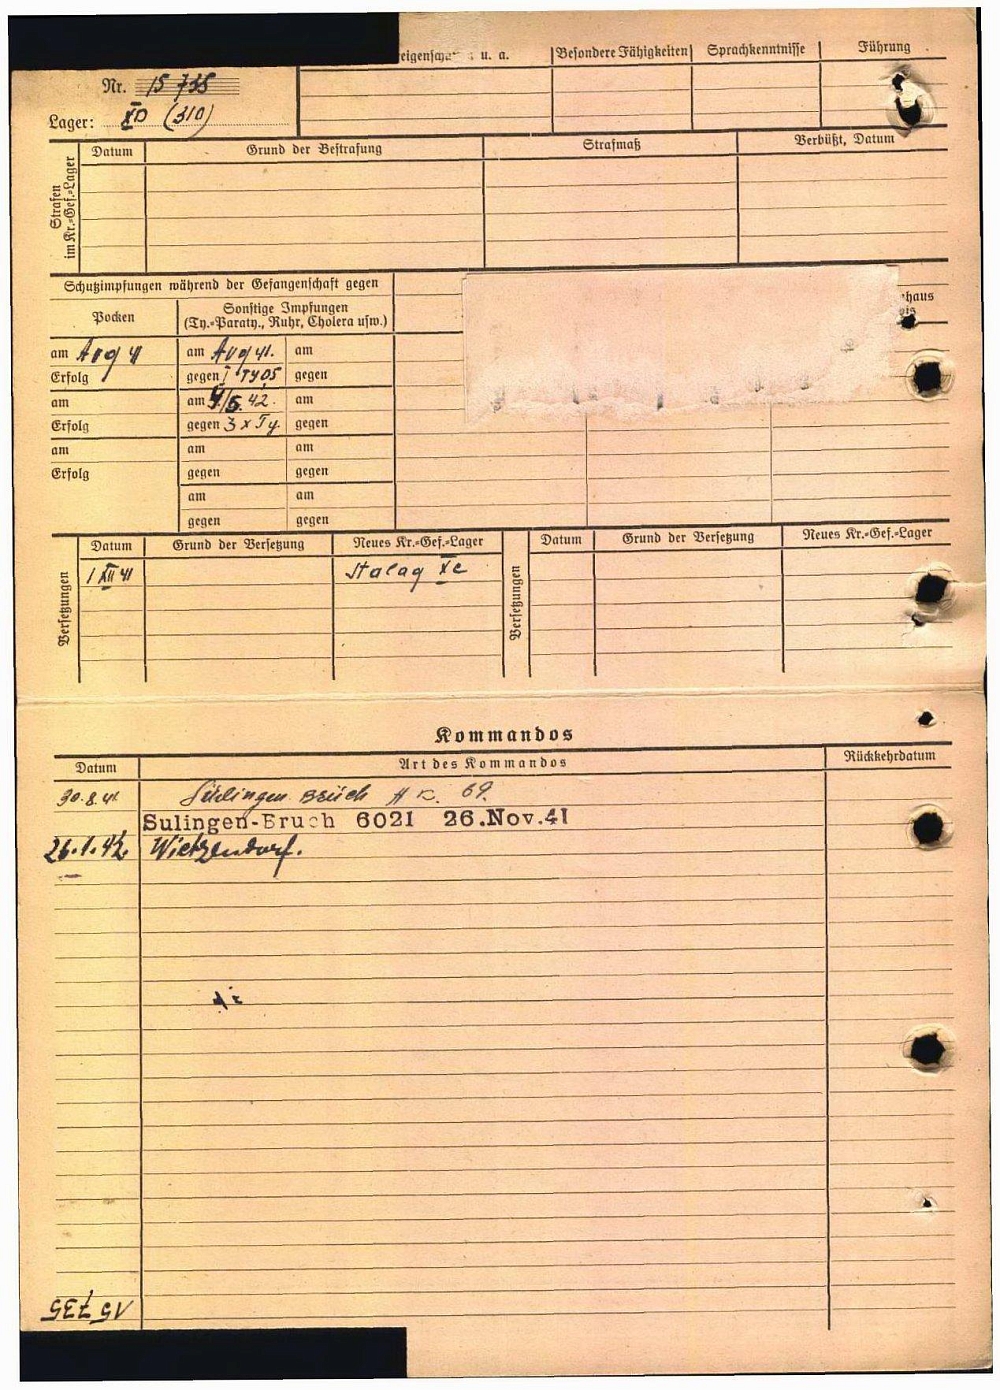 u. a. Besondere Fähigkeiten Sprachkenntnisse Führung
Nr. 15 735
Lager: XD (310)
Strafen im Kr.=Gef.=Lager
Datum Grund der Bestrafung Strafmaß Verbüßt, Datum
Schutzimpfungen während der Gefangenschaft gegen
Pocken
Sonstige Impfungen
(Ty.=Paraty., Ruhr, Cholera usw.)
am Aug 41 am Aug 41. am
Erfolg gegen I Ty05 gegen
am am 9/5. 42. am
Erfolg gegen 3 x Ty. gegen
am am am
Erfolg gegen gegen
am am
gegen gegen
Versetzungen
Datum Grund der Versetzung Neues Kr.=Gef.=Lager
1 XII 41 Stalag Xc
Versetzungen
Datum Grund der Versetzung Neues Kr.=Gef.=Lager
Kommandos
Datum Art des Kommandos Rückkehrdatum
30.8.41 Sulingen Bruch A K. 69.
Sulingen-Bruch 6021 26.Nov.41
26.1.42. Wietzendorf.
15 735